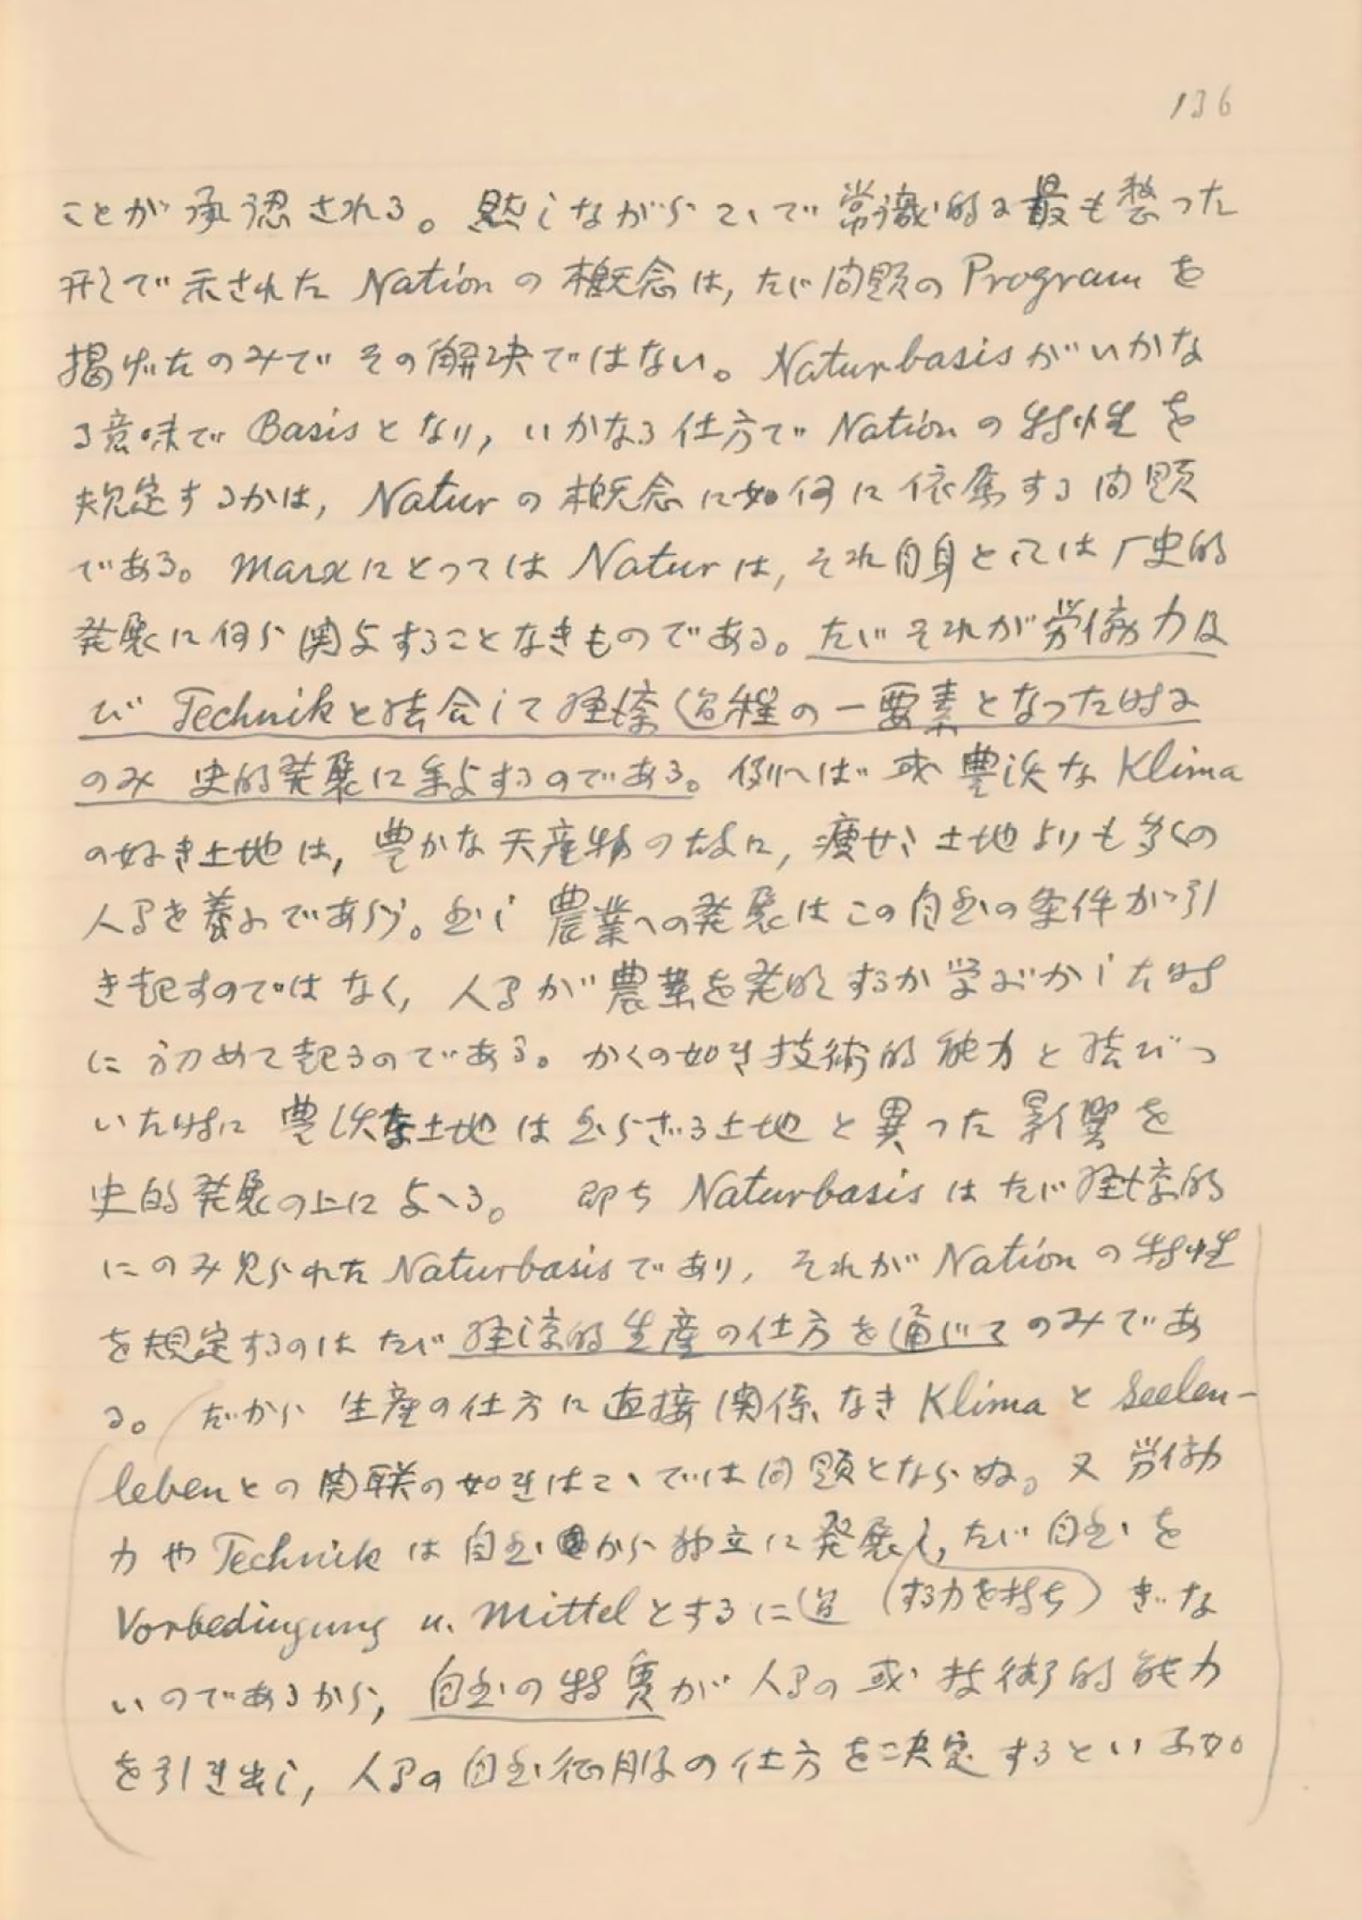 136
ことが承認される。然しながらこゝで常識的に最も整った
形で示された Nation の概念は, たゞ問題の Program を
掲げたのみで その解決ではない。Naturbasis がいかな
る意味で Basis となり, いかなる仕方で Nation の特性を
規定するかは, Natur の概念に如何に依属する問題
である。Marx にとっては Natur は, それ自身としては 史的
発展に何ら関与することなきものである。たゞそれが労働力及
び Technik と結合して経済過程の一要素となった時に
のみ 史的発展に参与するのである。例へば 或 豊沃な Klima
の好き土地は, 豊かな天産物の故に, 瘠せた土地よりも多くの
人間を養ふであらう。然し 農業への発展はこの自然の条件が引
き起すのではなく, 人間が農業を発明するか学ぶかした時
に初めて起るのである。かくの如き技術的能力と結びつ
いた時に 豊沃な土地は然らざる土地と異った影響を
史的発展の上に与へる。 即ち Naturbasis はたゞ経済的
にのみ見られた Naturbasis であり, それが Nation の特性
を規定するのはたゞ経済的生産の仕方を通じてのみであ
る。だから 生産の仕方に直接関係なき Klima と Seelen-
leben との関聯の如きはこゝでは問題とならぬ。又 労働
力や Technik は自然から独立に発展し, たゞ自然を
(する力を持ち)
Vorbedingung u. Mittel とするに過ぎな
いのであるから, 自然の特質が人間の或 技術的能力
を引き出し, 人間の自然征服の仕方を決定するといふ如